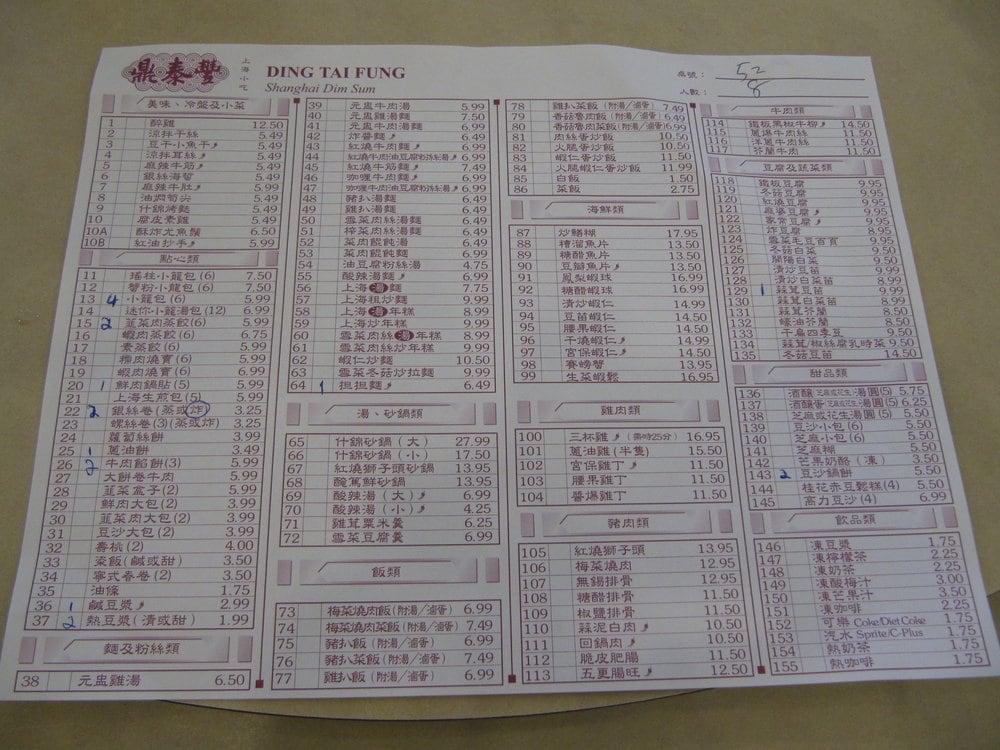 鼎泰豐
上海小吃
DING TAI FUNG
Shanghai Dim Sum
桌號： 52
人數： 8
美味、冷盤及小菜
1 醉雞 12.50
2 涼拌干絲 5.49
3 豆干小魚干 5.49
4 涼拌耳絲 5.49
5 麻辣牛筋 5.49
6 銀絲海蜇 5.49
7 麻辣牛肚 5.99
8 油燜筍尖 5.49
9 什錦烤麩 5.49
10 腐皮素雞 5.49
10A 酥炸尤魚鬚 6.50
10B 紅油抄手 5.99
點心類
11 瑤柱小龍包(6) 7.50
12 蟹粉小龍包(6) 7.50
13 4 小龍包(6) 5.99
14 迷你小龍湯包(12) 6.99
15 2 韮菜肉蒸餃(6) 5.99
16 蝦肉蒸餃(6) 6.75
17 素蒸餃(6) 5.99
18 糯肉燒賣(6) 5.99
19 蝦肉燒賣(6) 6.99
20 1 鮮肉鍋貼(5) 5.99
21 上海生煎包(5) 5.99
22 2 銀絲卷(蒸或炸) 3.25
23 螺絲卷(3)(蒸或炸) 3.25
24 蘿蔔絲餅 3.99
25 1 蔥油餅 3.49
26 2 牛肉餡餅(3) 5.99
27 大餅卷牛肉 5.99
28 韮菜盒子(2) 5.99
29 鮮肉大包(2) 3.99
30 韮菜肉大包(2) 3.99
31 豆沙大包(2) 3.99
32 壽桃(2) 4.00
33 粢飯(鹹或甜) 3.50
34 寧式春卷(2) 3.50
35 油條 1.75
36 1 鹹豆漿 2.99
37 2 熱豆漿(清或甜) 1.99
麵及粉絲類
38 元盅雞湯 6.50
39 元盅牛肉湯 5.99
40 元盅雞湯麵 7.50
41 元盅牛肉湯麵 6.99
42 炸醬麵 6.49
43 紅燒牛肉麵 6.99
44 紅燒牛肉油豆腐粉絲湯 6.99
45 紅燒牛筋麵 7.49
46 咖喱牛肉麵 6.99
47 咖喱牛肉油豆腐粉絲湯 6.99
48 豬扒湯麵 6.49
49 雞扒湯麵 6.49
50 雪菜肉絲湯麵 6.49
51 榨菜肉絲湯麵 6.49
52 菜肉餛飩湯 6.49
53 菜肉餛飩麵 6.49
54 油豆腐粉絲湯 4.75
55 酸辣湯麵 6.99
56 上海湯麵 7.75
57 上海粗炒麵 9.99
58 上海湯年糕 8.99
59 上海炒年糕 9.99
60 雪菜肉絲湯年糕 8.99
61 雪菜肉絲炒年糕 9.99
62 蝦仁炒麵 10.50
63 雪菜蝦子炒拉麵 9.99
64 1 担担麵 6.49
湯、砂鍋類
65 什錦砂鍋(大) 27.99
66 什錦砂鍋(小) 17.50
67 紅燒獅子頭砂鍋 13.95
68 醃篤鮮砂鍋 13.95
69 酸辣湯(大) 6.99
70 酸辣湯(小) 4.25
71 雞茸粟米羹 6.25
72 雪菜豆腐羹 6.99
飯類
73 梅菜燒肉飯(附湯/滷蛋) 6.99
74 梅菜燒肉菜飯(附湯/滷蛋) 7.49
75 豬扒飯(附湯/滷蛋) 6.99
76 豬扒菜飯(附湯/滷蛋) 7.49
77 雞扒飯(附湯/滷蛋) 6.99
78 雞扒菜飯(附湯/滷蛋) 7.49
79 香菇魯肉飯(附湯/滷蛋) 6.49
80 香菇魯肉菜飯(附湯/滷蛋) 6.99
81 肉絲蛋炒飯 10.50
82 火腿蛋炒飯 10.50
83 蝦仁蛋炒飯 11.50
84 火腿蝦仁蛋炒飯 11.99
85 白飯 1.50
86 菜飯 2.75
海鮮類
87 炒鱔糊 17.95
88 糟溜魚片 13.50
89 糖醋魚片 13.50
90 豆瓣魚片 13.50
91 鳳梨蝦球 16.99
92 糖醋蝦球 16.99
93 清炒蝦仁 14.99
94 豆苗蝦仁 14.99
95 腰果蝦仁 14.99
96 干燒蝦仁 14.99
97 宮保蝦仁 14.50
98 賽螃蟹 13.95
99 生菜蝦鬆 16.95
雞肉類
100 三杯雞 (需時25分) 16.95
101 蔥油雞(半隻) 15.50
102 宮保雞丁 11.50
103 腰果雞丁 11.50
104 醬爆雞丁 11.50
豬肉類
105 紅燒獅子頭 13.95
106 梅菜燒肉 12.95
107 無錫排骨 12.95
108 糖醋排骨 11.50
109 椒鹽排骨 11.50
110 蒜泥白肉 10.50
111 回鍋肉 10.50
112 脆皮肥腸 11.50
113 五更腸旺 12.50
牛肉類
114 鐵板黑椒牛柳 14.50
115 蔥爆牛肉絲 11.50
116 洋蔥牛肉絲 11.50
117 芥蘭牛肉 11.50
豆腐及蔬菜類
118 鐵板豆腐 9.95
119 冬菇豆腐 9.95
120 紅燒豆腐 9.95
121 麻婆豆腐 9.95
122 家常豆腐 9.95
123 炸豆腐 8.95
124 雪菜毛豆百頁 9.95
125 冬菇白菜 9.50
126 開陽白菜 9.50
127 清炒豆苗 9.99
128 清炒白菜苗 8.50
129 1 蒜茸豆苗 9.99
130 蒜茸白菜苗 8.50
131 蒜茸芥蘭 8.50
132 蠔油芥蘭 8.50
133 干扁四季豆 9.50
134 蒜茸/椒絲腐乳時菜 9.50
135 冬菇豆苗 14.50
甜品類
136 酒釀芝麻或花生湯圓(5) 5.75
137 酒釀蛋芝麻或花生湯圓(5) 6.25
138 芝麻或花生湯圓(5) 5.50
139 豆沙小包(6) 5.50
140 芝麻小包(6) 5.50
141 芝麻糊 5.50
142 芒果奶酪(凍) 3.50
143 2 豆沙鍋餅 5.50
144 桂花赤豆鬆糕(4) 5.50
145 高力豆沙(4) 6.99
飲品類
146 凍豆漿 1.75
147 凍檸檬茶 2.25
148 凍奶茶 2.25
149 凍酸梅汁 3.00
150 凍芒果汁 3.50
151 凍咖啡 2.25
152 可樂 Coke/Diet Coke 1.75
153 汽水 Sprite/C-Plus 1.75
154 熱奶茶 1.75
155 熱咖啡 1.75